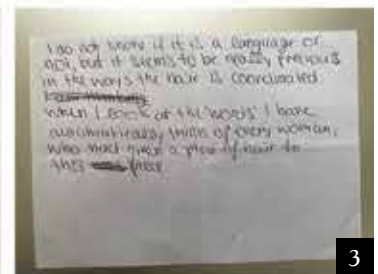 I do not know if it is a language or
not, but it seems to be really
in the ways the hair is coordinated
When I look at the 'words' I have
automatically think of every woman,
who had given a piece of hair to
this
3